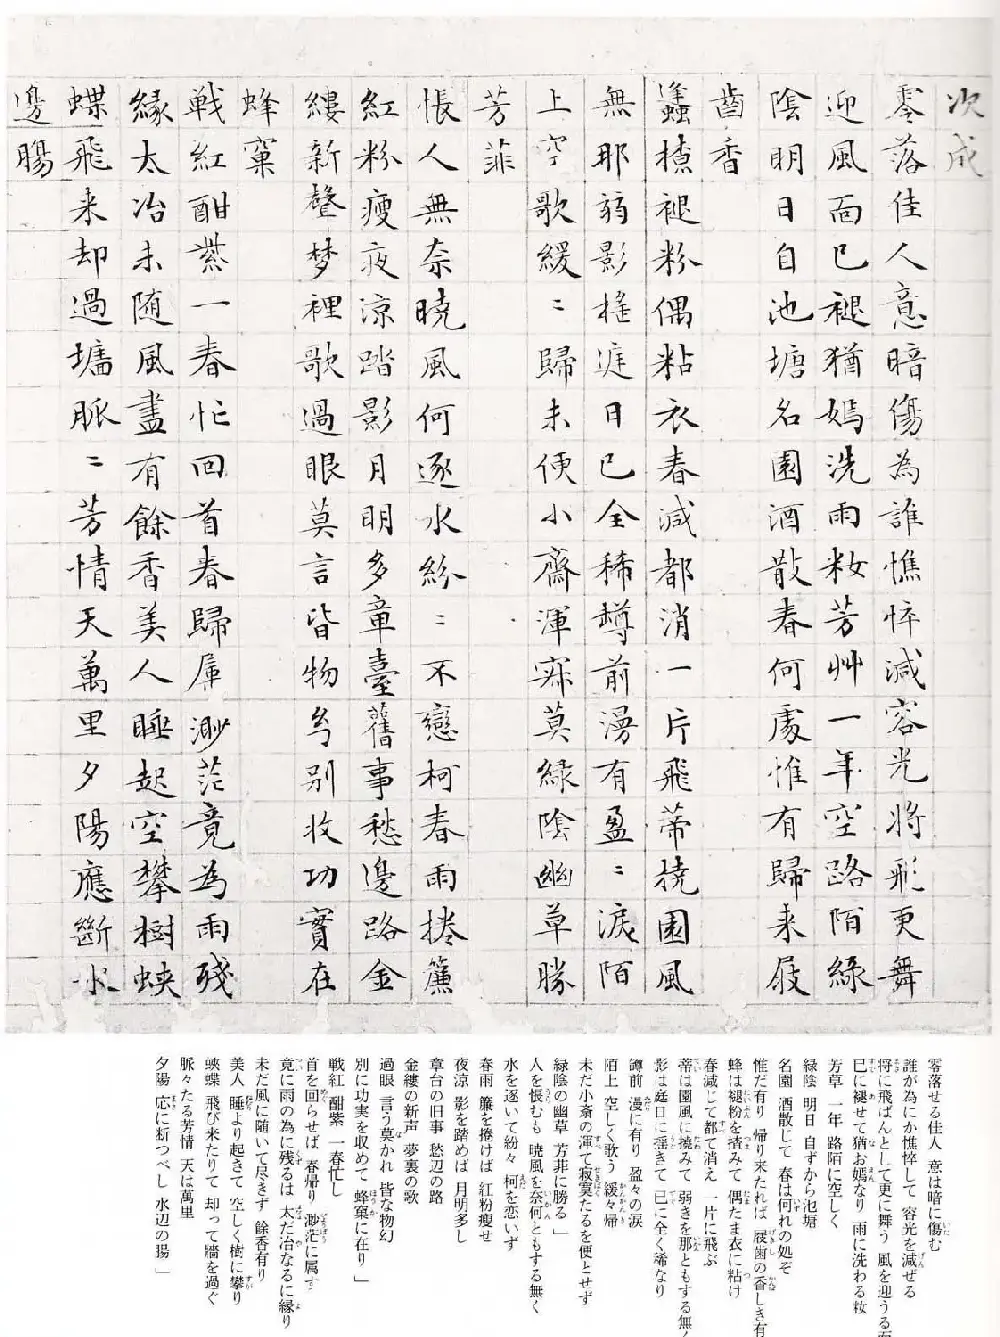 次成
零落佳人意暗傷為誰憔悴減容光将飛更舞
迎風面已褪猶嫣洗雨粧芳艸一年空路陌緑
陰明日自池塘名園酒散春何處惟有歸来屐
齒香
蠭𢴲褪粉偶粘衣春減都消一片飛蒂撓園風
無那弱影摇庭日已全稀樽前漫有盈〻淚陌
上空歌緩〻歸未便小齋渾寂莫緑陰幽草勝
芳菲
悵人無奈曉風何逐水紛〻不戀柯春雨捲簾
紅粉瘦夜涼踏影月明多章臺舊事愁邊路金
縷新聲梦裡歌過眼莫言皆物幻别收功實在
蜂窠
戦紅酣紫一春忙回首春歸属渺茫竟為雨残
緣太冶未随風盡有餘香美人睡起空攀樹蛺
蝶飛来却過墻脈〻芳情天萬里夕陽應斷水
邊腸
零落せる佳人 意は暗に傷む
誰が為にか憔悴して 容光を減ぜる
将に飛ばんとして更に舞う 風を迎うる
已に褪せて猶お嫣なり 雨に洗わる粧
芳草 一年 路陌に空しく
緑陰 明日 自ずから池塘
名園 酒散じて 春は何れの処ぞ
惟だ有り 帰り来たれば 屐歯の香しき有
蜂は褪粉を摘みて 偶たま衣に粘け
春減じて都て消え 一片に飛ぶ
蒂は園風に撓みて 弱きを那ともする無
影は庭日に揺きて 已に全く稀なり
罇前 漫に有り 盈々の涙
陌上 空しく歌う 緩々帰
未だ小斎の渾て寂寞たるを便とせず
緑陰の幽草 芳菲に勝る」
人を悵むも 暁風を奈何ともする無く
水を逐いて紛々 柯を恋いず
春雨 簾を捲けば 紅粉瘦せ
夜涼 影を踏めば 月明多し
章台の旧事 愁辺の路
金縷の新声 夢裏の歌
過眼 言う莫かれ 皆な物幻
別に功実を収めて 蜂窠に在り」
戦紅 酣紫 一春忙し
首を回らせば 春帰り 渺茫に属す
竟に雨の為に残るは 太だ冶なるに縁り
未だ風に随いて尽きず 餘香有り
美人 睡より起きて 空しく樹に攀り
蛺蝶 飛び来たりて 却って牆を過ぐ
脈々たる芳情 天は萬里
夕陽 応に断つべし 水辺の腸」